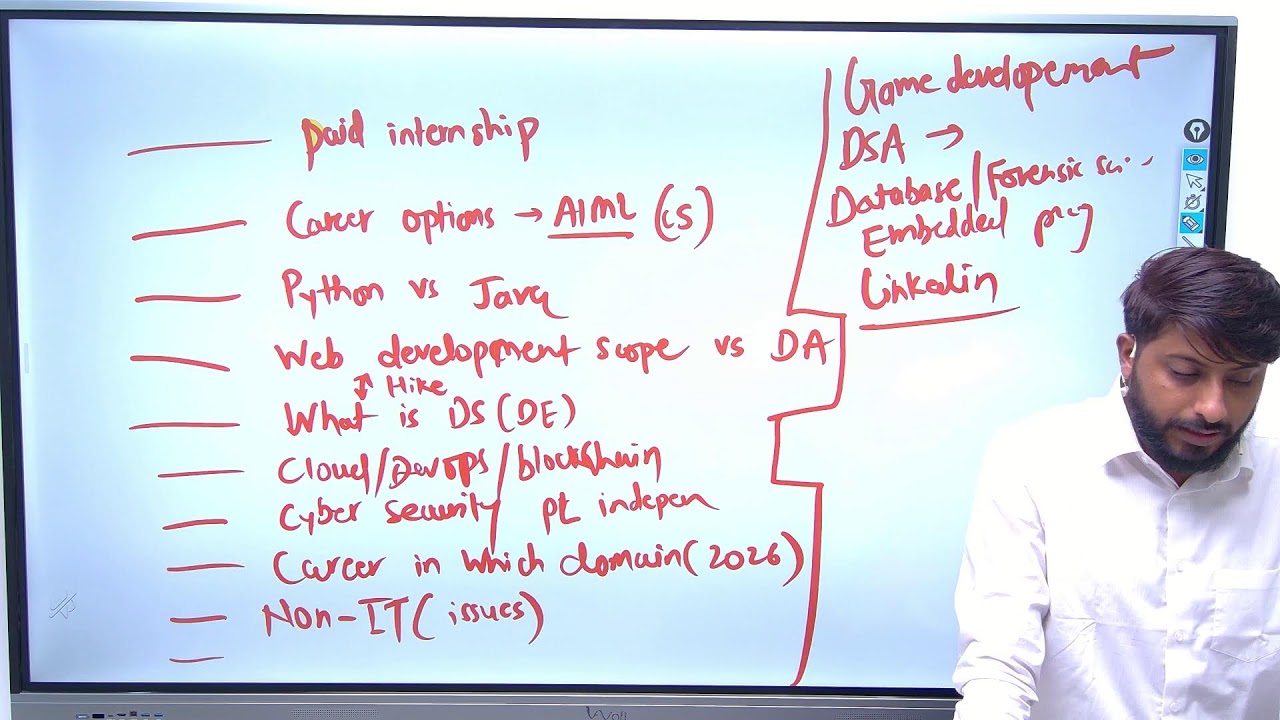 Paid internship
Career options → AIML (CS)
Python vs Java
Web development scope vs DA
Hike
What is DS (DE)
Cloud/Devops/blockchain
Cyber security/ pt indepen
Career in which domain (2026)
Non-IT (issues)
Game developement
DSA →
Database/Forensic sci...
Embedded prg
Linkedin